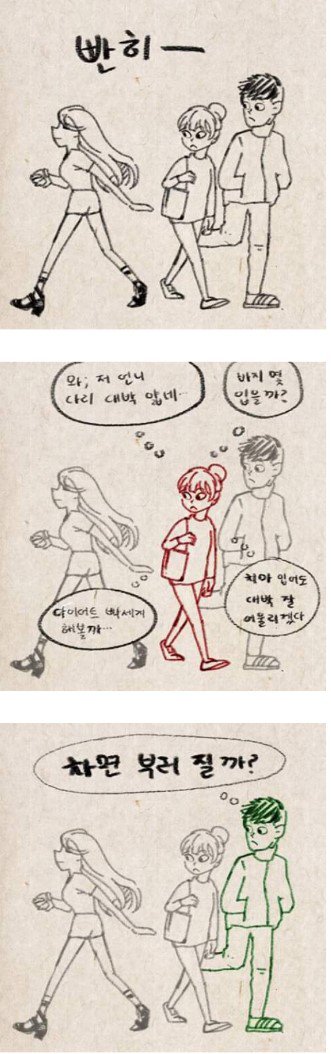 빤히ー
와; 저 언니
다리 대박 얇네…
바지 몇
입을까?
다이어트 빡세게
해볼까…
치마 입어도
대박 잘
어울리겠다
차면 부러 질까?